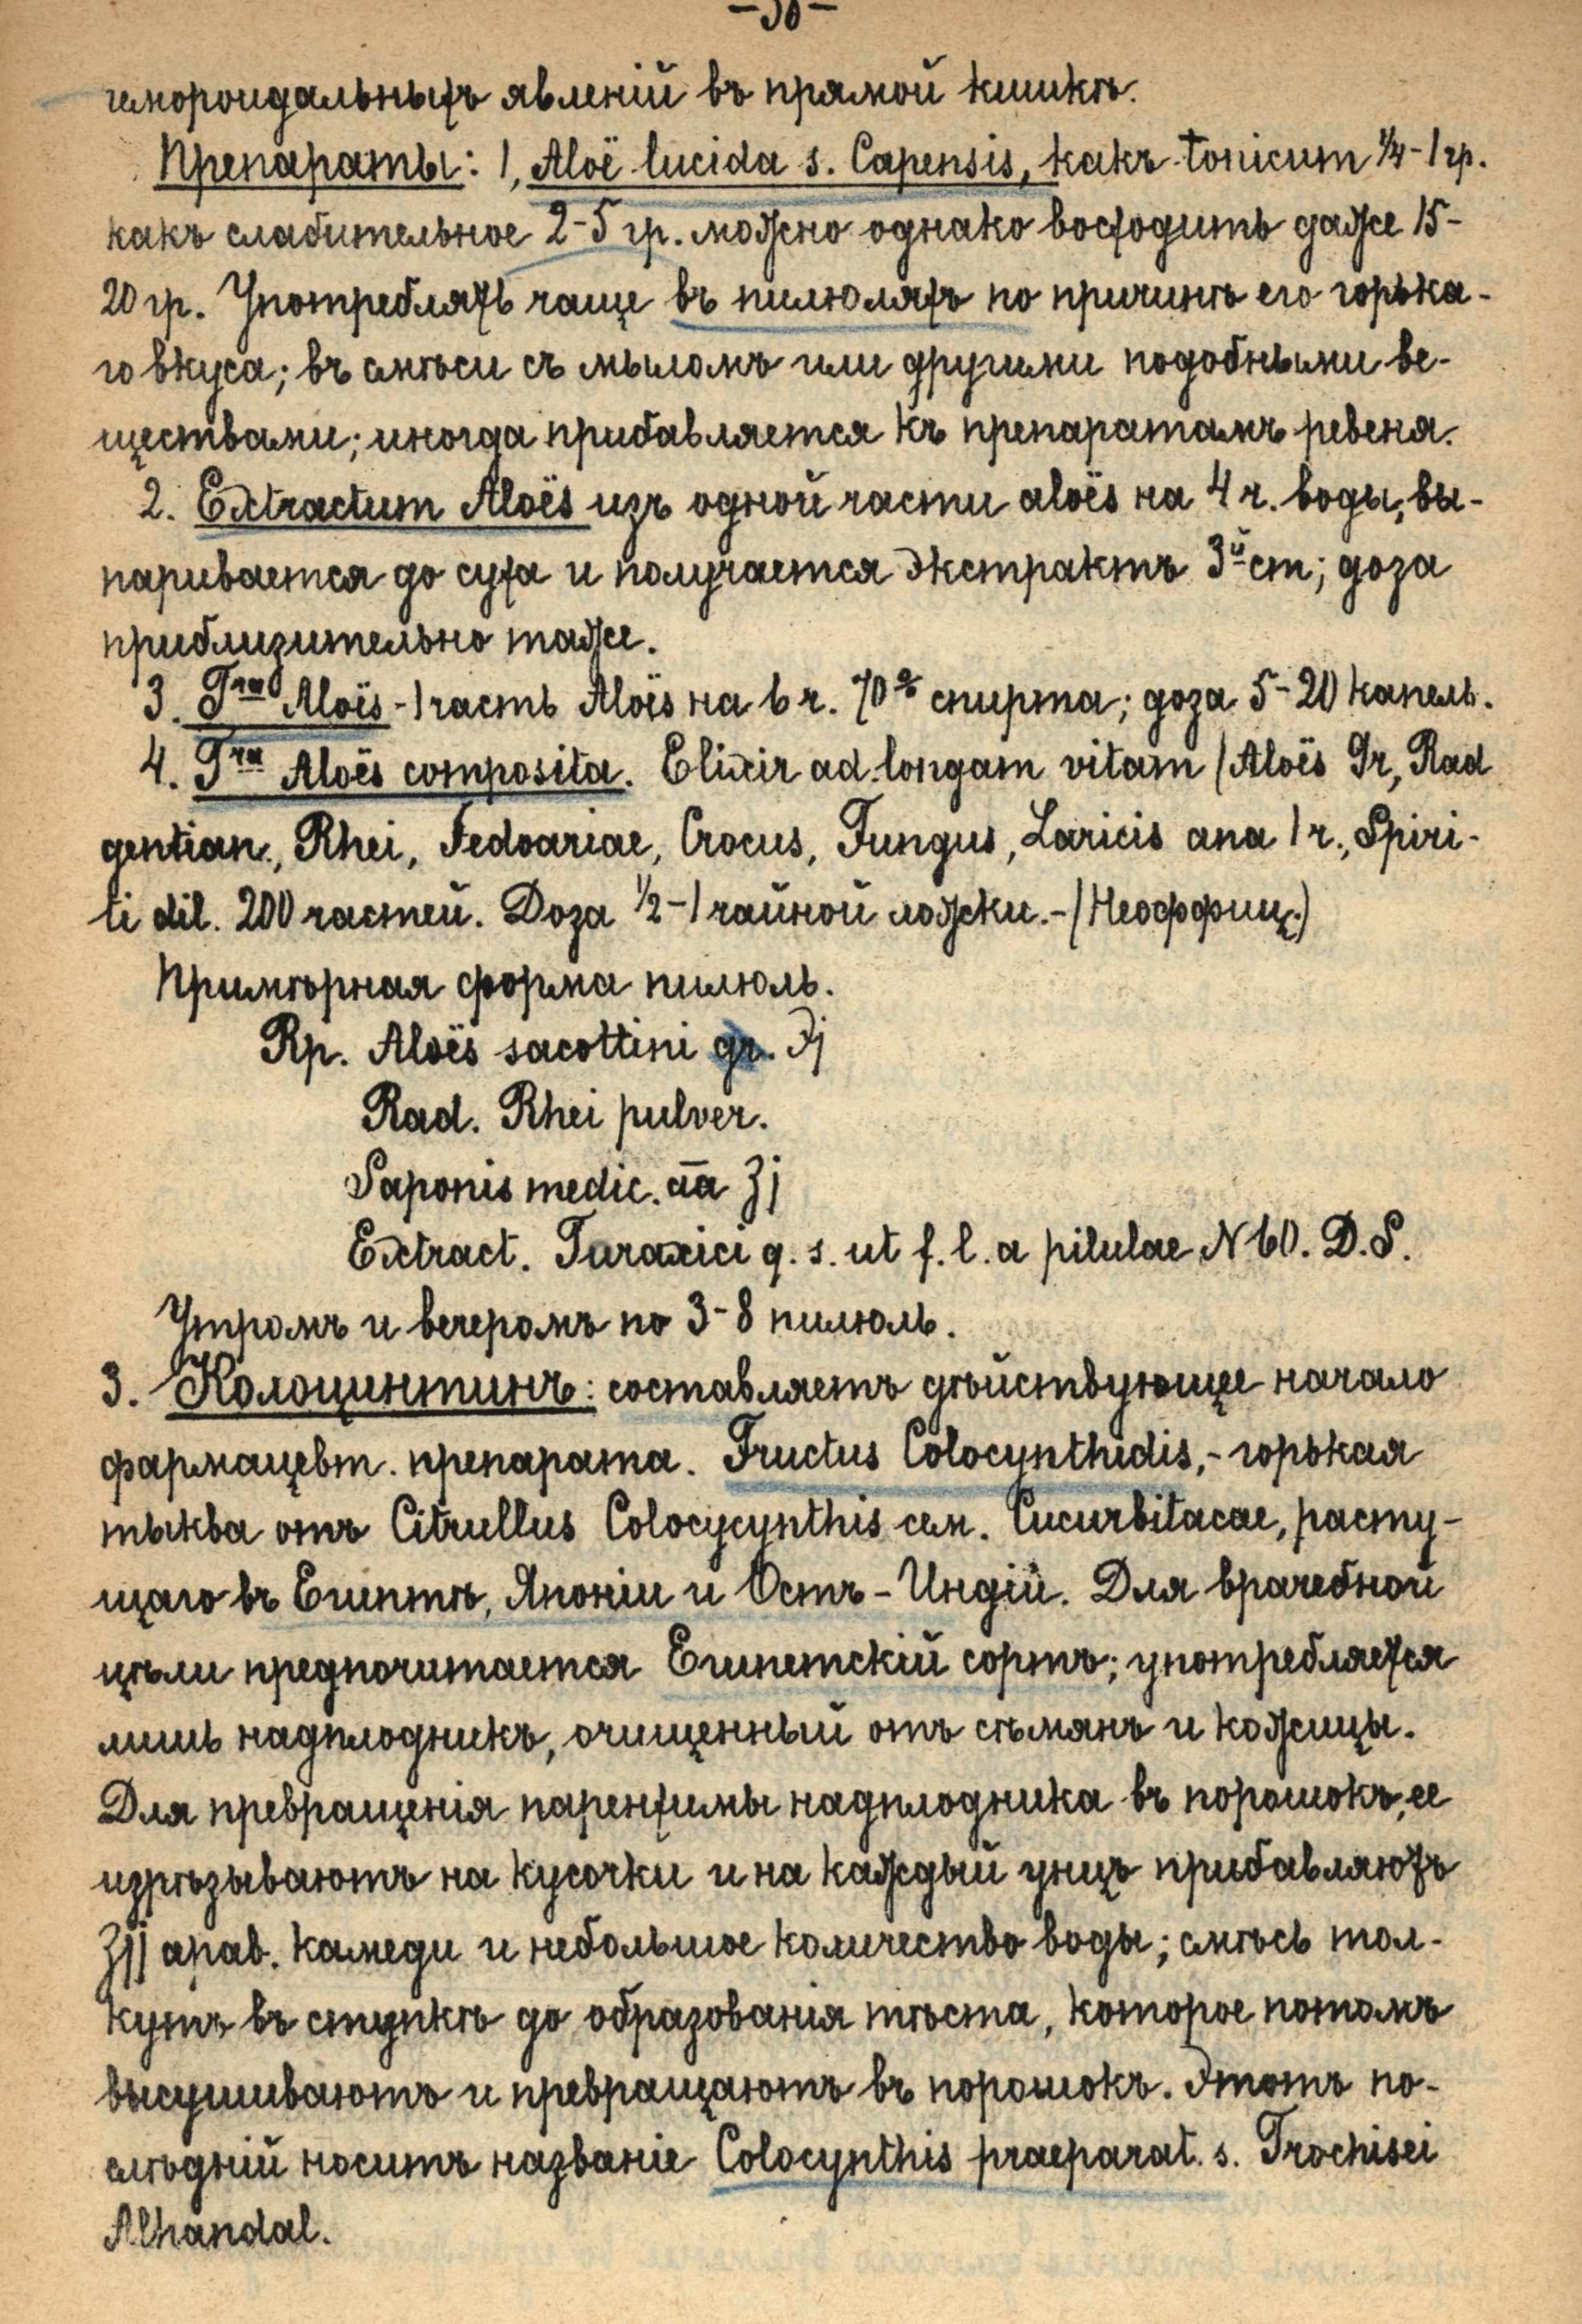 геморроидальныхъ явленій въ прямой кишкѣ.
Препараты: 1, Aloë lucida s. Capensis, какъ tonicum ¼-1 гр.
какъ слабительное 2-5 гр. можно однако восходить даже 15-
20 гр. Употреблять чаще въ пилюляхъ по причинѣ его горька-
го вкуса; въ смѣси съ мыломъ или другими подобными ве-
ществами; иногда прибавляется къ препаратамъ ревеня.
2. Extractum Aloës изъ одной части aloës на 4 ч. воды, вы-
паривается до суха и получается экстрактъ 3й ст; доза
приблизительно таже.
3. Tra Aloës - 1 часть Aloës на 6 ч. 70% спирта; доза 5-20 капель.
4. Tra Aloës composita. Elixir ad longam vitam (Aloës Gr, Rad
gentian., Rhei, Fedoariae, Crocus, Fungus, Laricis ana 1 ч., Spiri-
ti dil. 200 частей. Доза ½-1 чайной ложки.-(Неоффиц.)
Примѣрная форма пилюль.
Rp. Aloës sacottini gr. ℈j
Rad. Rhei pulver.
Saponis medic. āā ʒj
Extract. Taraxici q. s. ut f. l. a pilulae N 60. D.S.
Утромъ и вечеромъ по 3-8 пилюль.
3. Колоцинтинъ: составляетъ дѣйствующее начало
фармацевт. препарата. Fructus Colocynthidis,- горькая
тыква отъ Citrullus Colocycynthis сем. Cucurbitacae, расту-
щаго въ Египтѣ, Японіи и Остъ-Индіи. Для врачебной
цѣли предпочитается Египетскій сортъ; употребляется
лишь надплодникъ, очищенный отъ сѣмянъ и кожицы.
Для превращенія паренхимы надплодника въ порошокъ, ее
изрѣзываютъ на кусочки и на каждый унцъ прибавляютъ
ʒjj арав. камеди и небольшое количество воды; смѣсь тол-
кутъ въ ступкѣ до образованія тѣста, которое потомъ
высушиваютъ и превращаютъ въ порошокъ. Этотъ по-
слѣдній носитъ названіе Colocynthis praeparat. s. Trochisei
Alhandal.